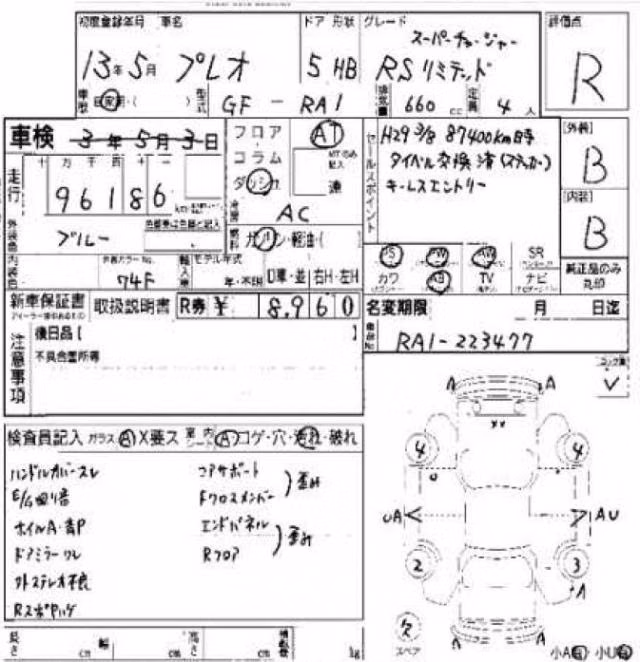 初度登録年月 車名 ドア 形状 グレード 評価点
13年5月 プレオ 5 HB スーパーチャージャー
RSリミテッド R
車歴 自家用・( ) 型式 GF-RA1 排気量 660 cc 定員 4 人
車検 3年5月3日
フロア AT
コラム MTのみ記入
ダッシュ 速
セールスポイント
H29 3/8 87400km時
タイベル交換済(ステッカー)
キーレスエントリー
[外装] B
[内装] B
純正品のみ丸印
走行 十 万 千 百 十 一
96186
冷房 AC
外装色 ブルー 色替車は色替と記入
燃料 ガソリン・軽油・( )
内装色 外装カラーNo. 74F
輸入車 モデル年式 年・不明 D車・並 右H・左H
PS PW AW SR
カワ AB TV ナビ
新車保証書 取扱説明書 R券 ¥ 8,960
名変期限 月 日迄
車台No RA1-223477
注意事項
後日品【 】
不具合箇所等
コーション
検査員記入 ガラス A X要ス 室内シート A コゲ・穴・汚れ・破れ
ハンドルカバースレ コアサポート 歪み
E/G回り音 Fクロスメンバー
ホイルA・青P エンドパネル 歪み
ドアミラーワレ Rフロア
外ステレオ不良
RスポPハゲ
A A
XX
4 4
U
UA AU
2 3
A
欠 スペア
A A
小A有 小U有
長さ cm 幅 cm 高さ cm 積載量 kg